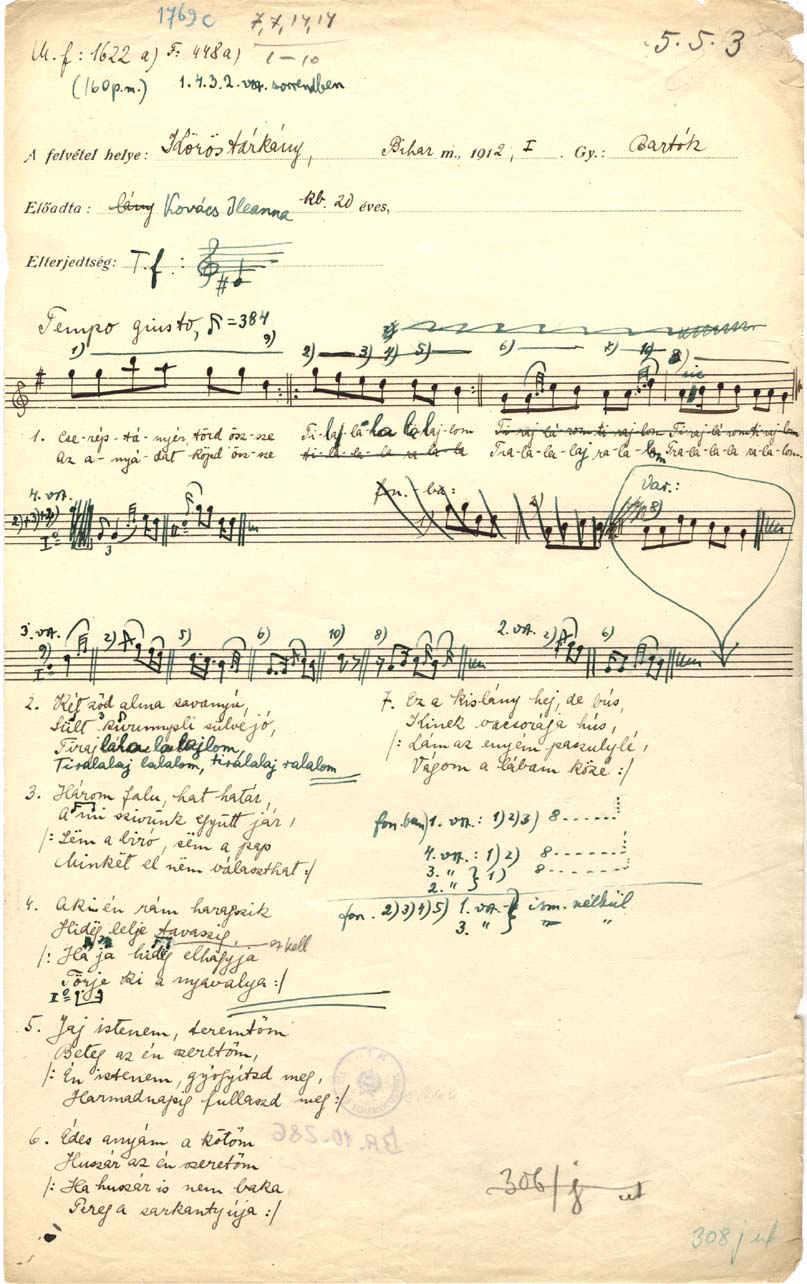 1769c 7, 7, 14, 14
M. f: 1622 a) F: 448a) 1-10 5.5.3
(160 p.m.) 1. 4. 3. 2. vsz. sorrendben
A felvétel helye: Köröstárkány, Bihar m., 1912, I. Gy.: Bartók
Előadta: lány Kovács Ileanna kb. 20 éves,
Elterjedtség: T. f.:
Tempo giusto, =384
1) 9) 2) 3) 4) 5) 6) 8)
1. Cse-rép-tá-nyér, törd ösz-sze Ti-laj-la-la la laj-lom
Az a-nyá-dat köpd ösz-sze ti-la-la-la ra-la-la Tra-la-la-laj ra-la-lom Tra-la-la-la ra-la-lom.
4. vsz. fon.-ba: Var.:
8)
3. vsz. 9) 2) 5) 6) 10) 8) 2. vsz. 2) 6)
2. Két zöd alma savanyú,
Sült kurumpli sülve jó,
Tiraj lala la lajlom,
Tiralalaj lalalom, tirálalaj ralalom
3. Három falu, hat határ,
A mi szivünk együtt jár,
/: Sëm a biró, sëm a pap
Minkët el nëm választhat :/
4. Aki én rám haragszik
Hideg lelje tavaszig,
/: Ha ja hideg elhagyja
Törje ki a nyavalya :/
ez kell
5. Jaj istenem, teremtőm
Beteg az én szeretőm,
/: Én istenem, gyógyitsd meg,
Harmadnapig fullaszd meg :/
6. Édes anyám a kötőm
Huszár az én szeretőm
/: Ha huszár is nem baka
Pereg a sarkantyúja :/
7. Ez a kislány hej, de bús,
Kinek vacsorája hús,
/: Lám az enyém paszulylé,
Vágom a lábam közé :/
fon.ban) 1. vsz.: 1) 2) 3) 8
4. vsz.: 1) 2) 8
3. " } 1) 8
2. "
fon. 2) 3) 4) 5) 1. vsz. } ism. nélkül
3. " " "
BR. 10-286
306/j
308 j